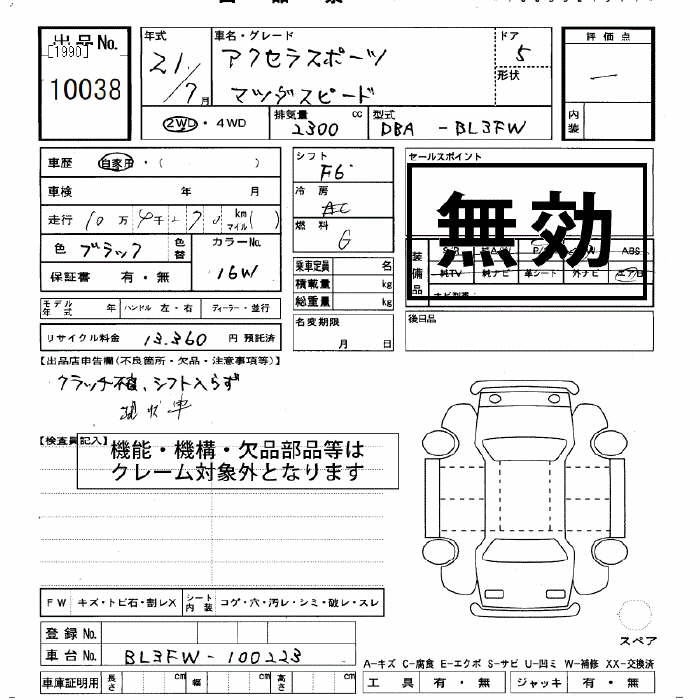 出品No.
[1990]
10038
年式
21/7月
車名・グレード
アクセラスポーツ
マツダスピード
ドア
5
形状
評価点
—
内装
2WD・4WD
排気量
2300 cc
型式
DBA -BL3FW
車歴 自家用・( )
車検 年 月
走行 10万 千 km マイル( )
色 ブラック 色替
カラーNo.
16W
保証書 有・無
シフト
F6
冷房
AC
燃料
G
乗車定員 名
積載量 kg
総重量 kg
名変期限
月 日
セールスポイント
無効
装備品
ABS
純TV 純ナビ 革シート 外ナビ エアB
後日品
モデル年式 年 ハンドル 左・右 ディーラー・並行
リサイクル料金 13,360 円 預託済
【出品店申告欄(不良箇所・欠品・注意事項等)】
クラッチ不良、シフト入らず
現状車
【検査員記入】
機能・機構・欠品部品等は
クレーム対象外となります
FW キズ・トビ石・割レX シート内装 コゲ・穴・汚レ・シミ・破レ・スレ
登録No.
車台No. BL3FW-100223
車庫証明用 長さ cm 幅 cm 高さ cm
スペア
A-キズ C-腐食 E-エクボ S-サビ U-凹ミ W-補修 XX-交換済
工具 有・無 ジャッキ 有・無